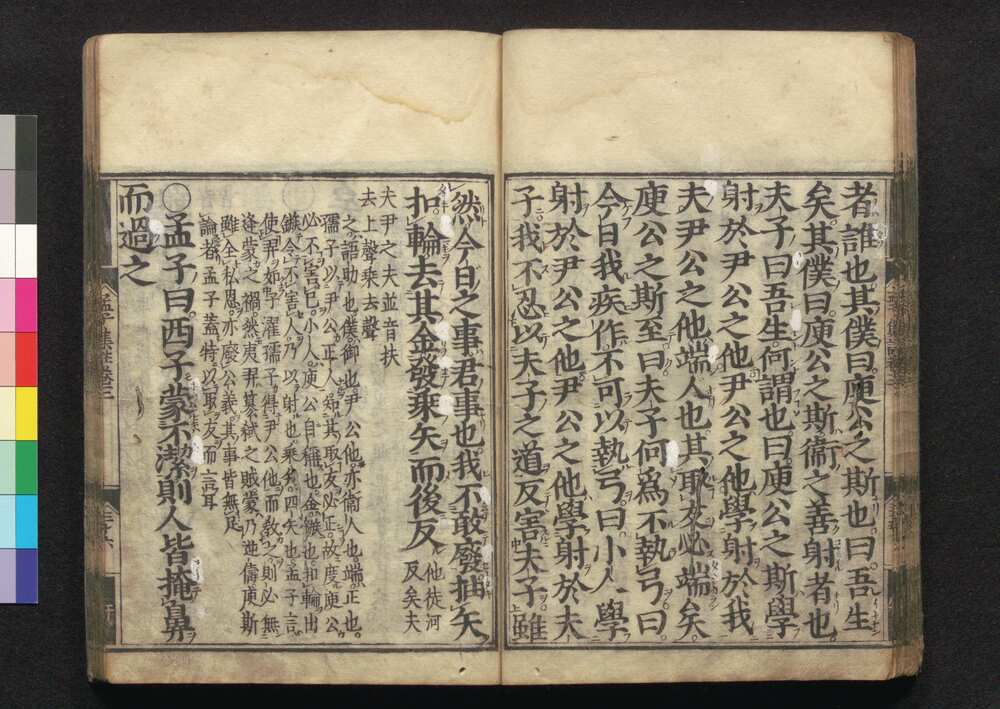 者誰也其僕曰庾公之斯也曰吾生
矣其僕曰庾公之斯衞之善射者也
夫子曰吾生何謂也曰庾公之斯學
射於尹公之他尹公之他學射於我
夫尹公之他端人也其取友必端矣
庾公之斯至曰夫子何爲不執弓曰
今日我疾作不可以執弓曰小人學
射於尹公之他尹公之他學射於夫
子我不忍以夫子之道反害夫子雖
然今日之事君事也我不敢廢抽矢
扣輪去其金發乘矢而後反
他徒河
反矣夫
夫尹之夫並音扶
去上聲乘去聲
之語助也僕御也尹公他亦衞人也端正也
孺子以尹公正人知其取友必正故度庾公
必不害己小人庾公自稱也金鏃也扣輪出
鏃令不害人乃以射也乘矢四矢也孟子言
使羿如子濯孺子得尹公他而敎之則必無
逢蒙之禍然夷羿簒弑之賊蒙乃逆儔庾斯
雖全私恩亦廢公義其事皆無足
論者孟子蓋特以取友而言耳
○孟子曰西子蒙不潔則人皆掩鼻
而過之